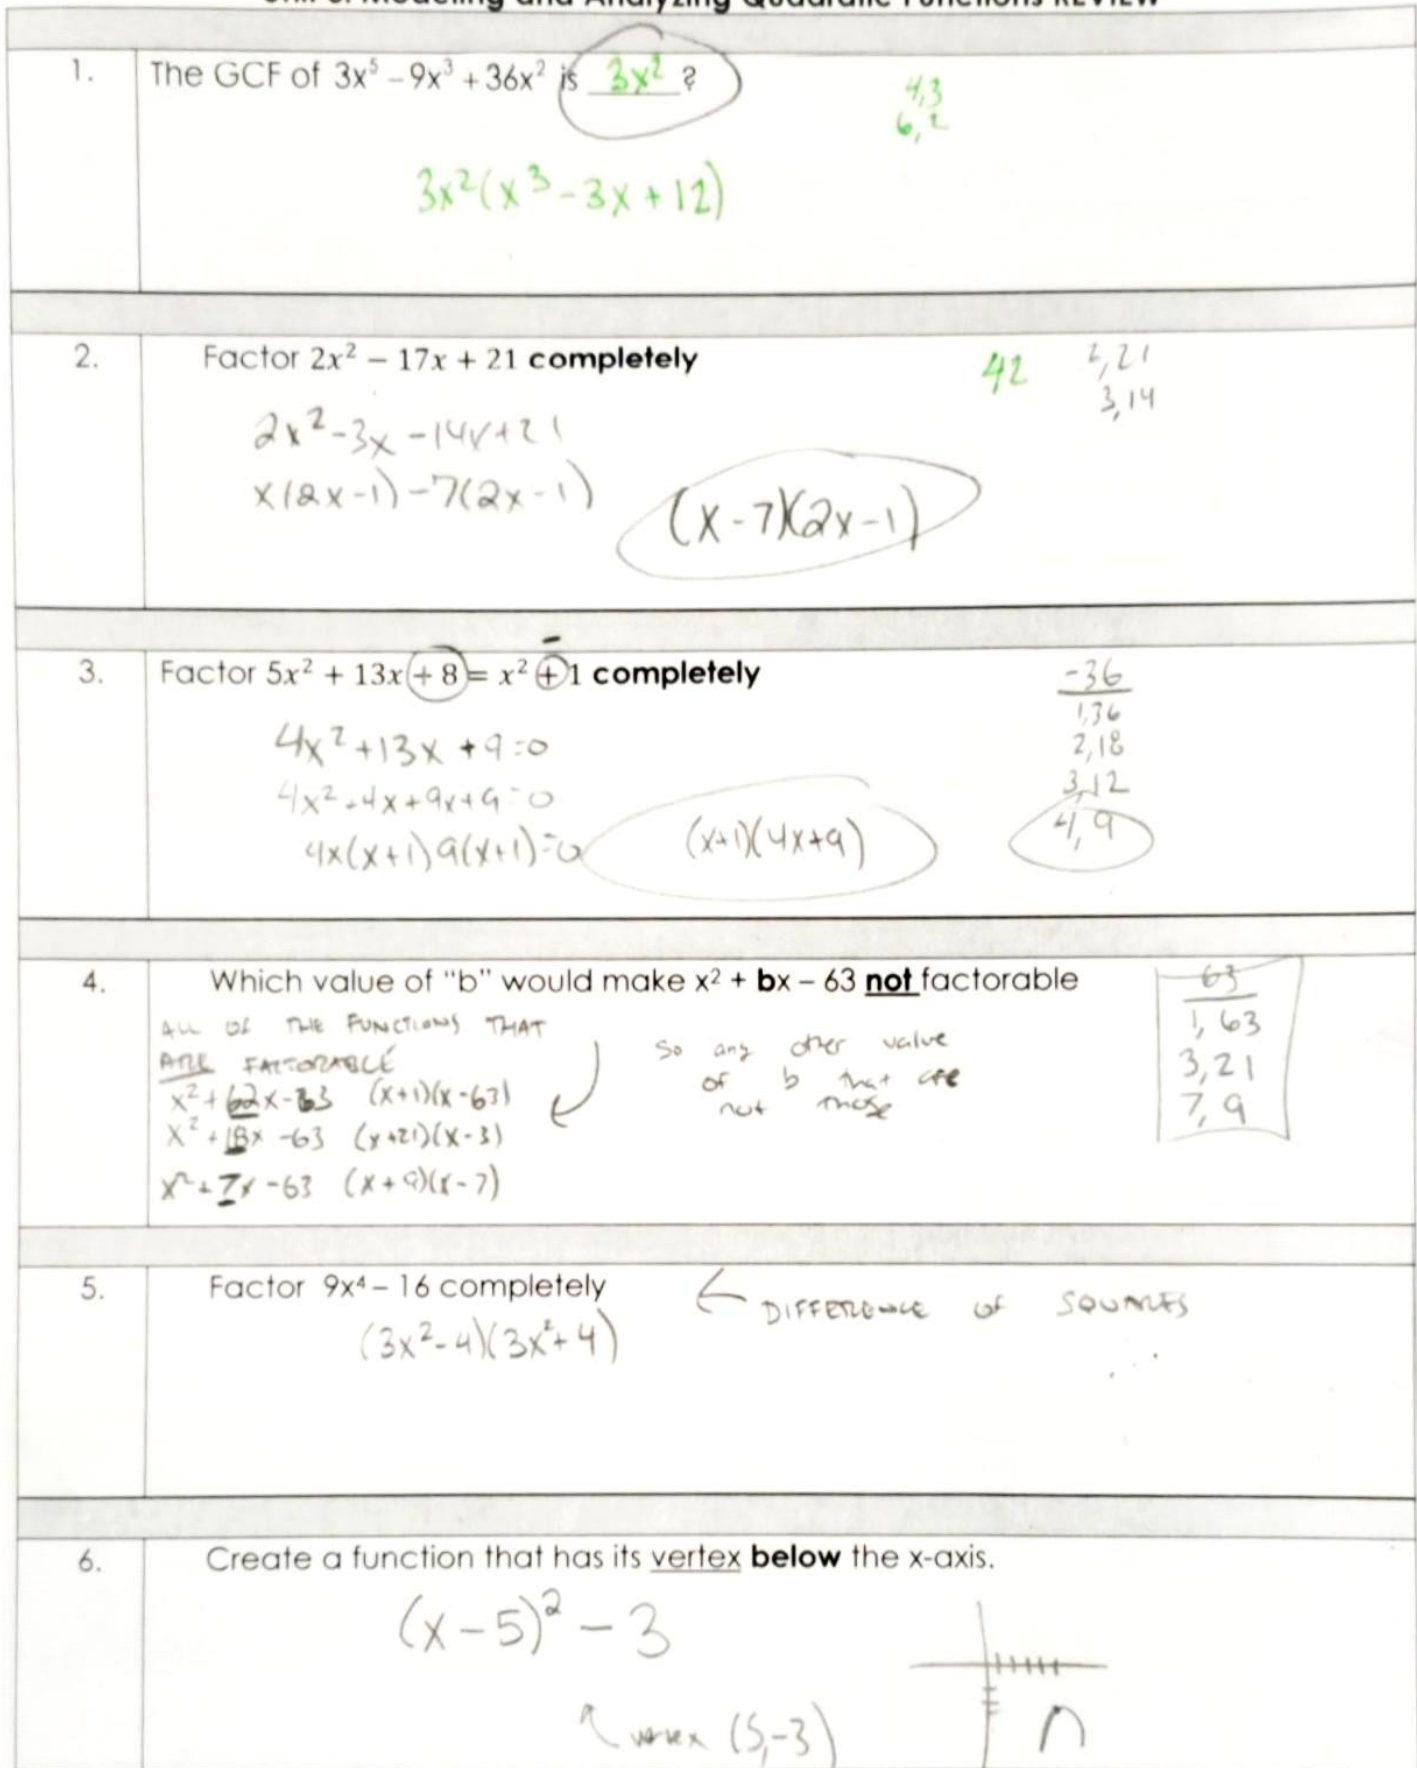 Modeling and Analyzing Quadratic Functions REVIEW
1. The GCF of 3x⁵ – 9x³ + 36x² is 3x² ?
4,3
6,2
3x²(x³ - 3x + 12)
2. Factor 2x² – 17x + 21 completely
42
2,21
3,14
2x² - 3x - 14x + 21
x(2x-1) - 7(2x-1)
(x-7)(2x-1)
3. Factor 5x² + 13x + 8 = x² + 1 completely
-
-36
1,36
2,18
3,12
4,9
4x² + 13x + 9 = 0
4x² + 4x + 9x + 9 = 0
4x(x+1) 9(x+1) = 0
(x+1)(4x+9)
4. Which value of "b" would make x² + bx – 63 not factorable
63
1,63
3,21
7,9
ALL OF THE FUNCTIONS THAT
ARE FACTORABLE
x² + 62x - 63 (x+1)(x-63)
x² + 18x - 63 (x+21)(x-3)
x² + 7x - 63 (x+9)(x-7)
So any other value
of b that are
not those
5. Factor 9x⁴ – 16 completely
← DIFFERENCE of SQUARES
(3x²-4)(3x²+4)
6. Create a function that has its vertex below the x-axis.
(x-5)² - 3
vertex (5,-3)